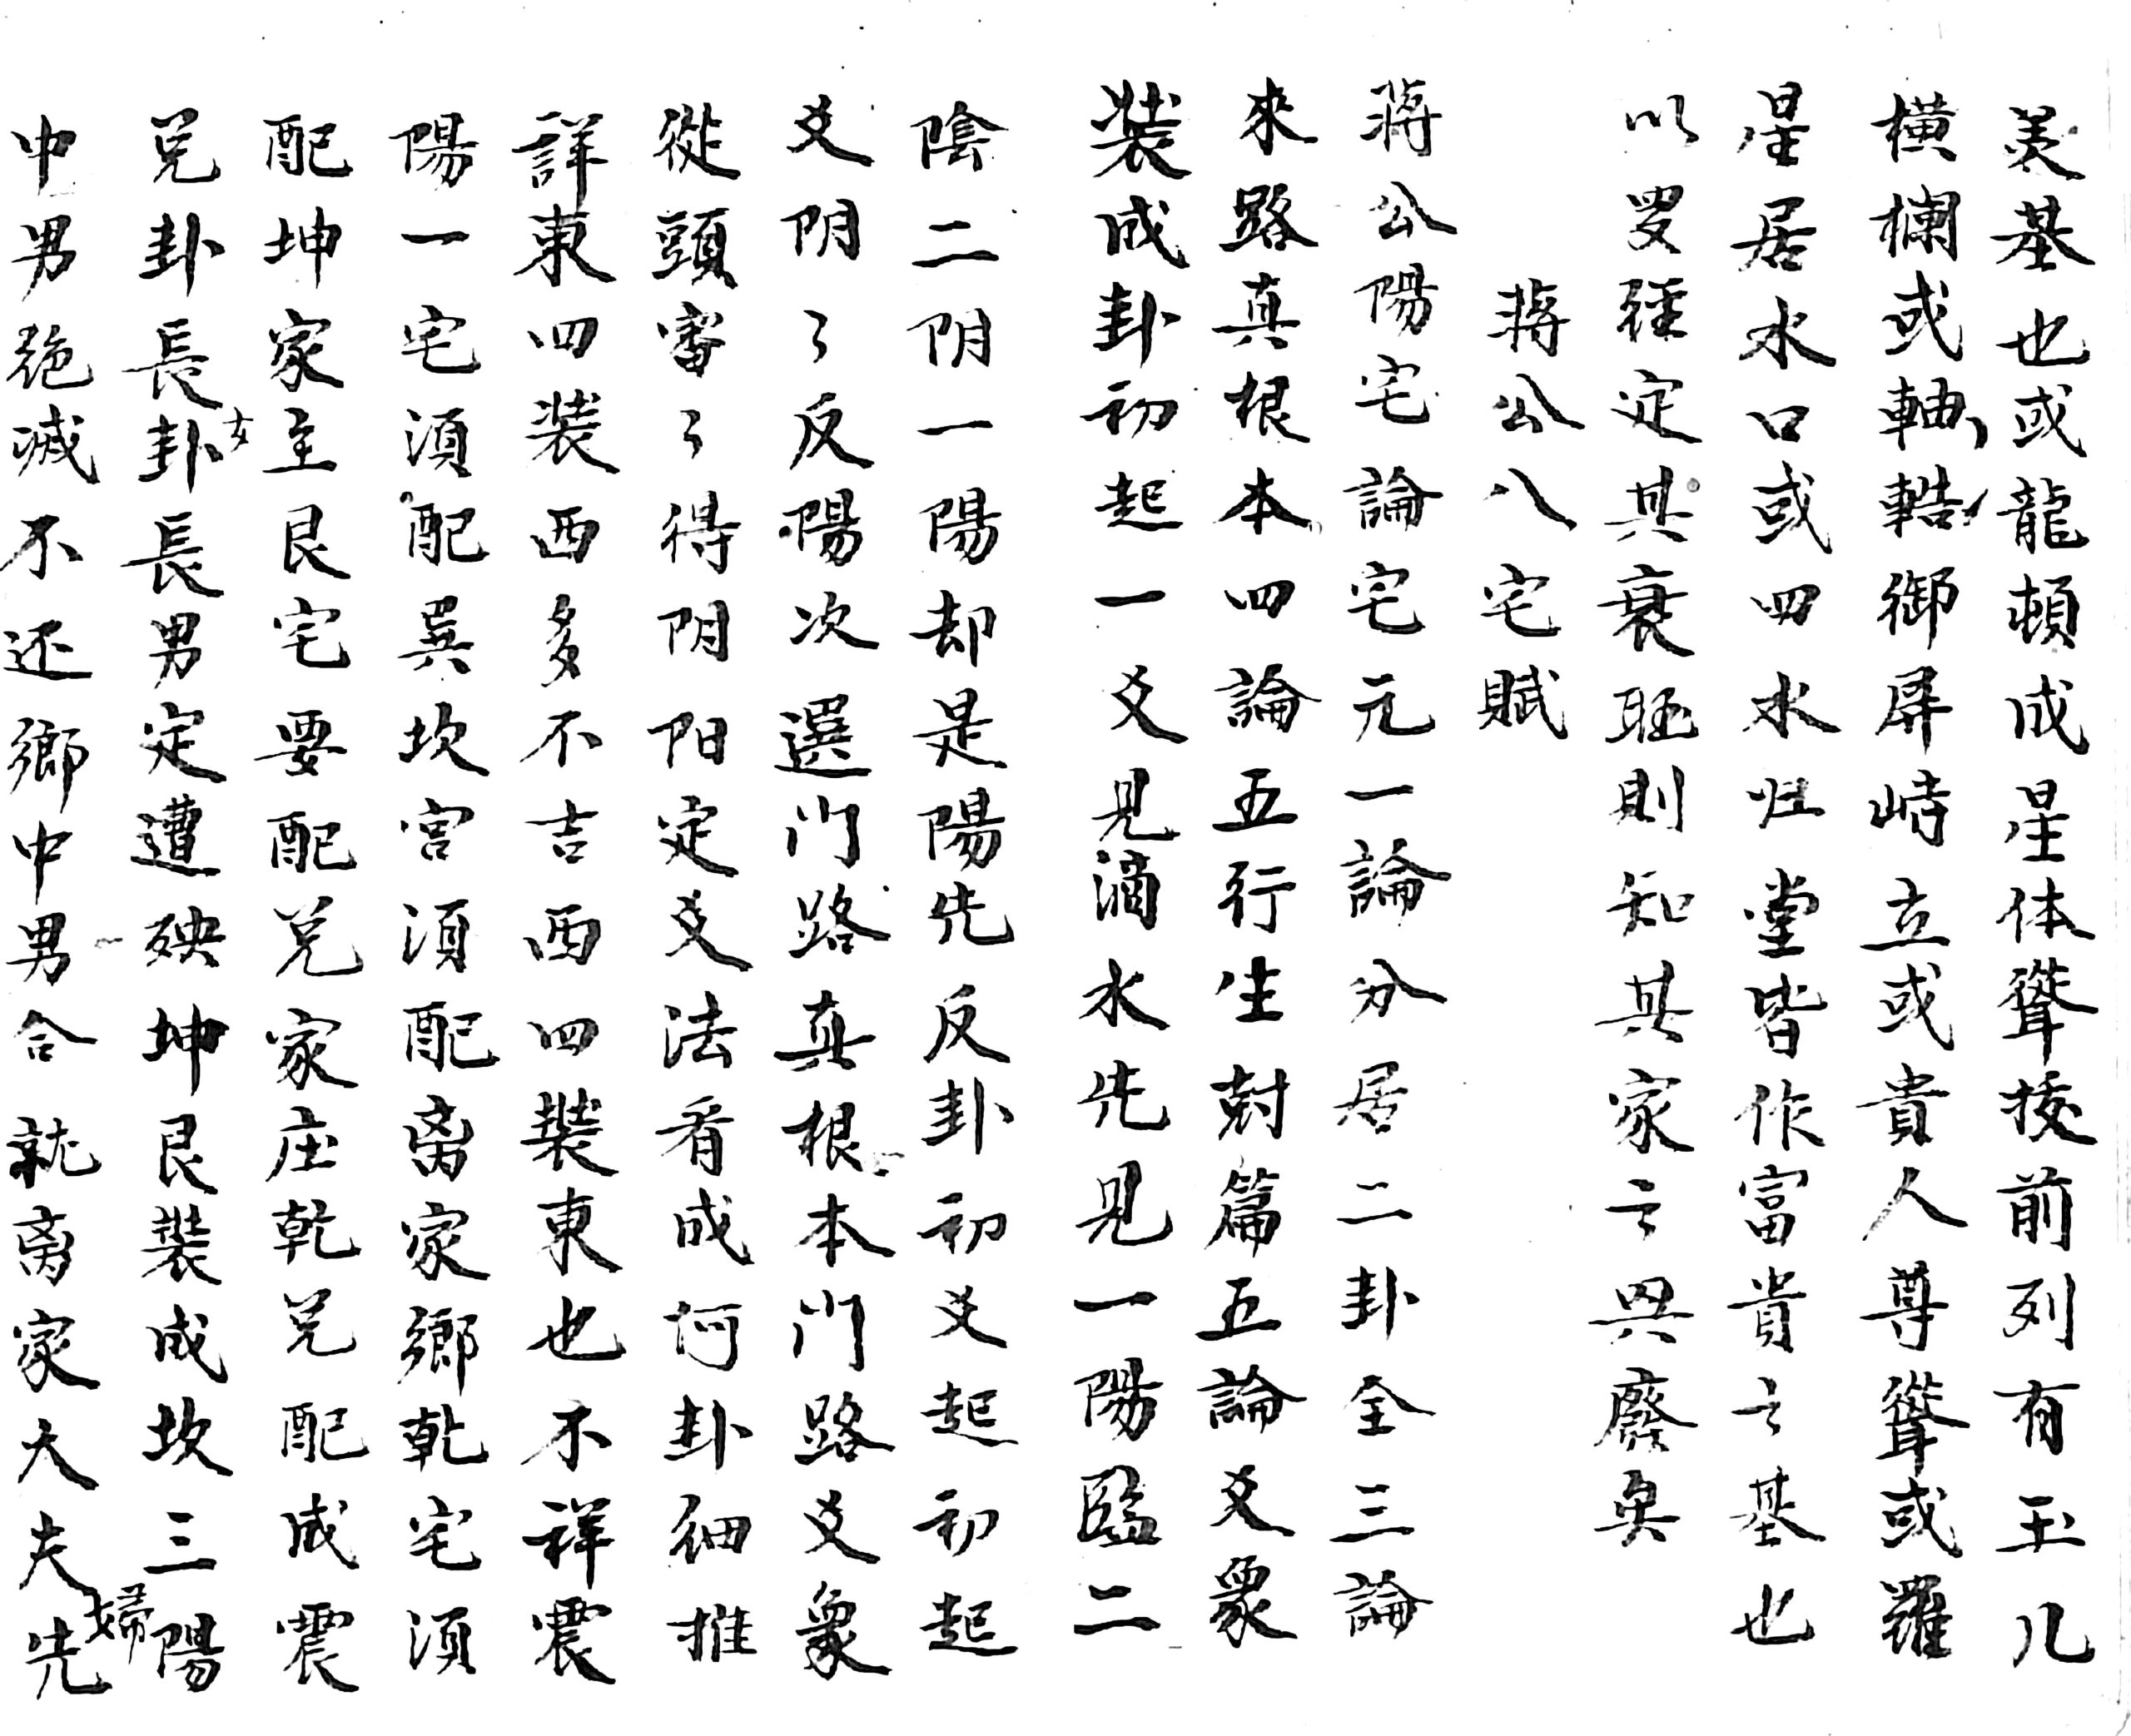 美基也或龍頓成星体聳拔前列有玉几
橫欄或軸轄御屏峙立或貴人尊聳或羅
星居水口或四水归堂皆作富貴之基也
以叟経定其衰旺則知其家之興廢矣
蔣公八宅賦
蔣公陽宅論宅元一論分居二卦全三論
來路真根本四論五行生尅篇五論爻象
装成卦初起一爻見滴水先見一陽臨二
陰二阴一陽却是陽先反卦初爻起初起
爻阴〻反陽次選门路真根本门路爻象
從頭審〻得阴阳定爻法看成何卦細推
詳東四装西多不吉西四裝東也不祥震
陽一宅須配巽坎宫須配离家鄉乾宅須
配坤家主艮宅要配兑家庄乾兑配成震
兑卦長女卦長男定遭殃坤艮裝成坎三陽
中男絕滅不还鄉中男合就离家大夫婦先